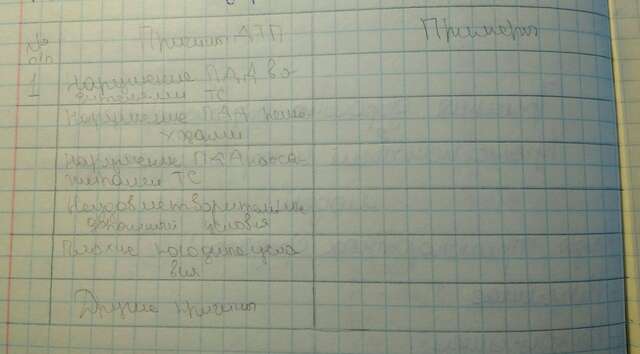 № п/п Причины ДТП Примеры
1 Нарушение ПДД во-
дителями ТС
Нарушение ПДД пеше-
ходами
Нарушение ПДД пасса-
жирами ТС
Неудовлетворительные
дорожные условия
Плохие погодные усло
вия
Другие причины